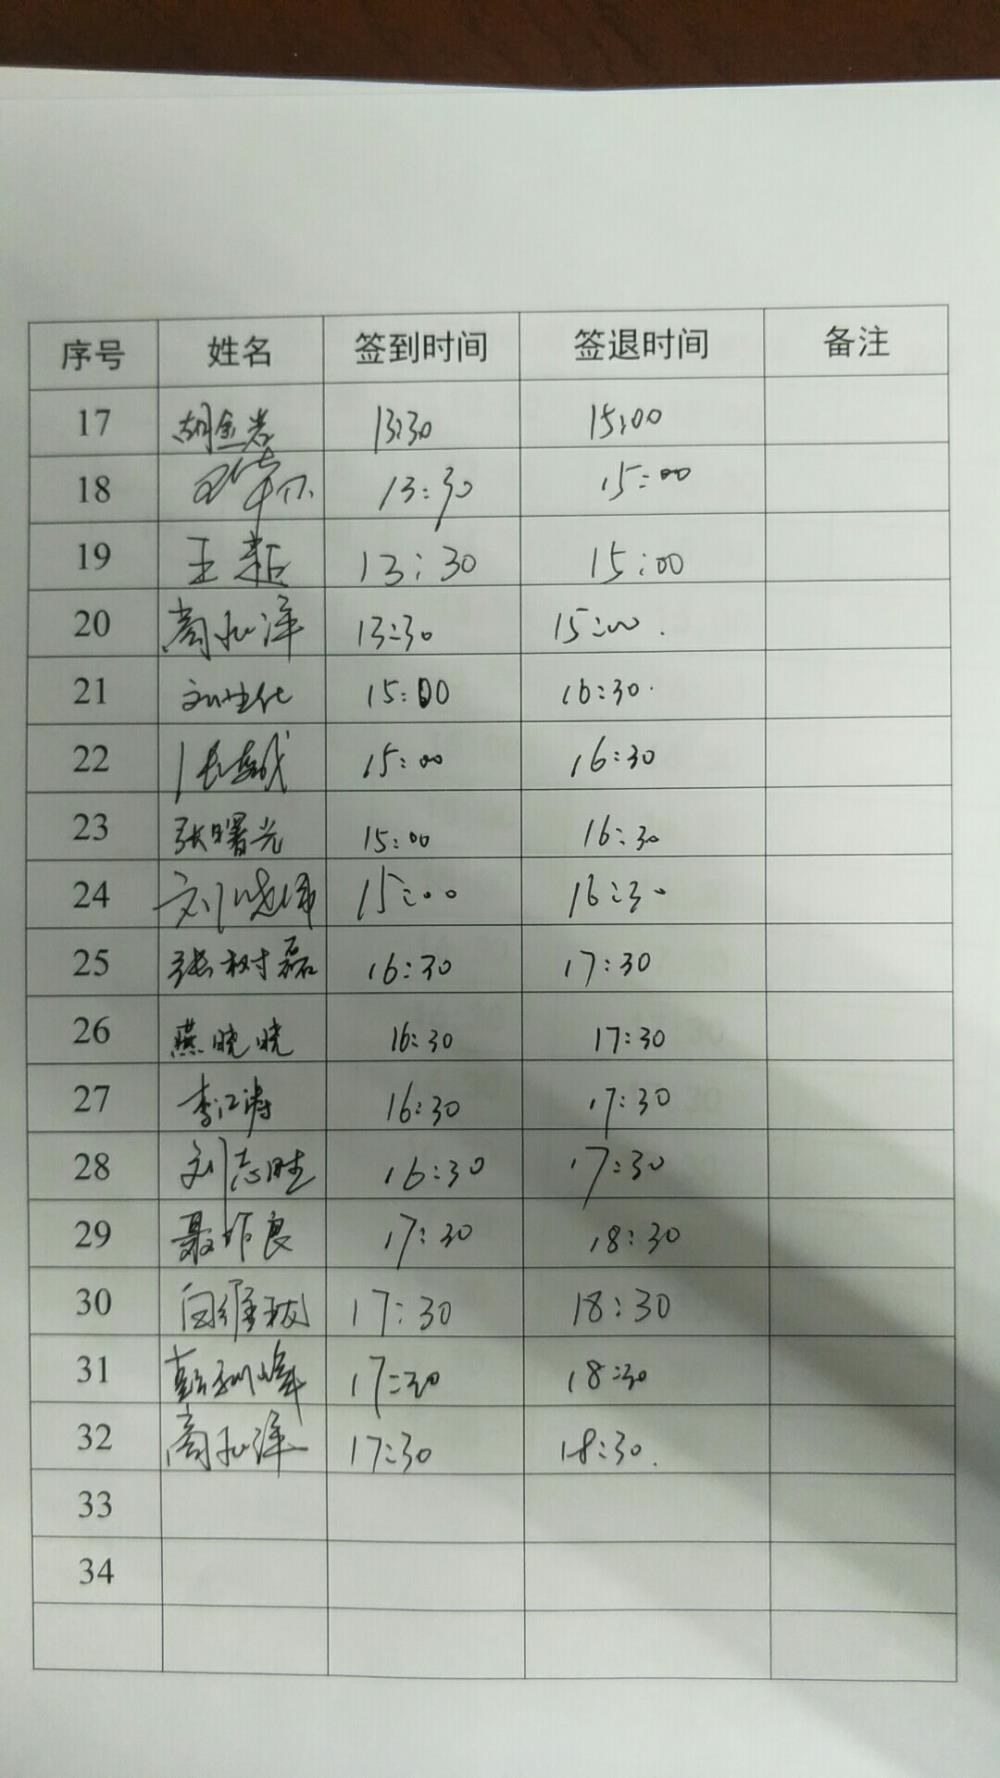 序号 姓名 签到时间 签退时间 备注
17 胡金岩 13:30 15:00
18 13:30 15:00
19 王 13:30 15:00
20 13:30 15:00
21 刘 15:00 16:30
22 15:00 16:30
23 张曙光 15:00 16:30
24 刘晓伟 15:00 16:30
25 张树磊 16:30 17:30
26 燕晓晓 16:30 17:30
27 李江涛 16:30 17:30
28 刘志胜 16:30 17:30
29 聂作良 17:30 18:30
30 白 17:30 18:30
31 彭 峰 17:30 18:30
32 17:30 18:30
33
34